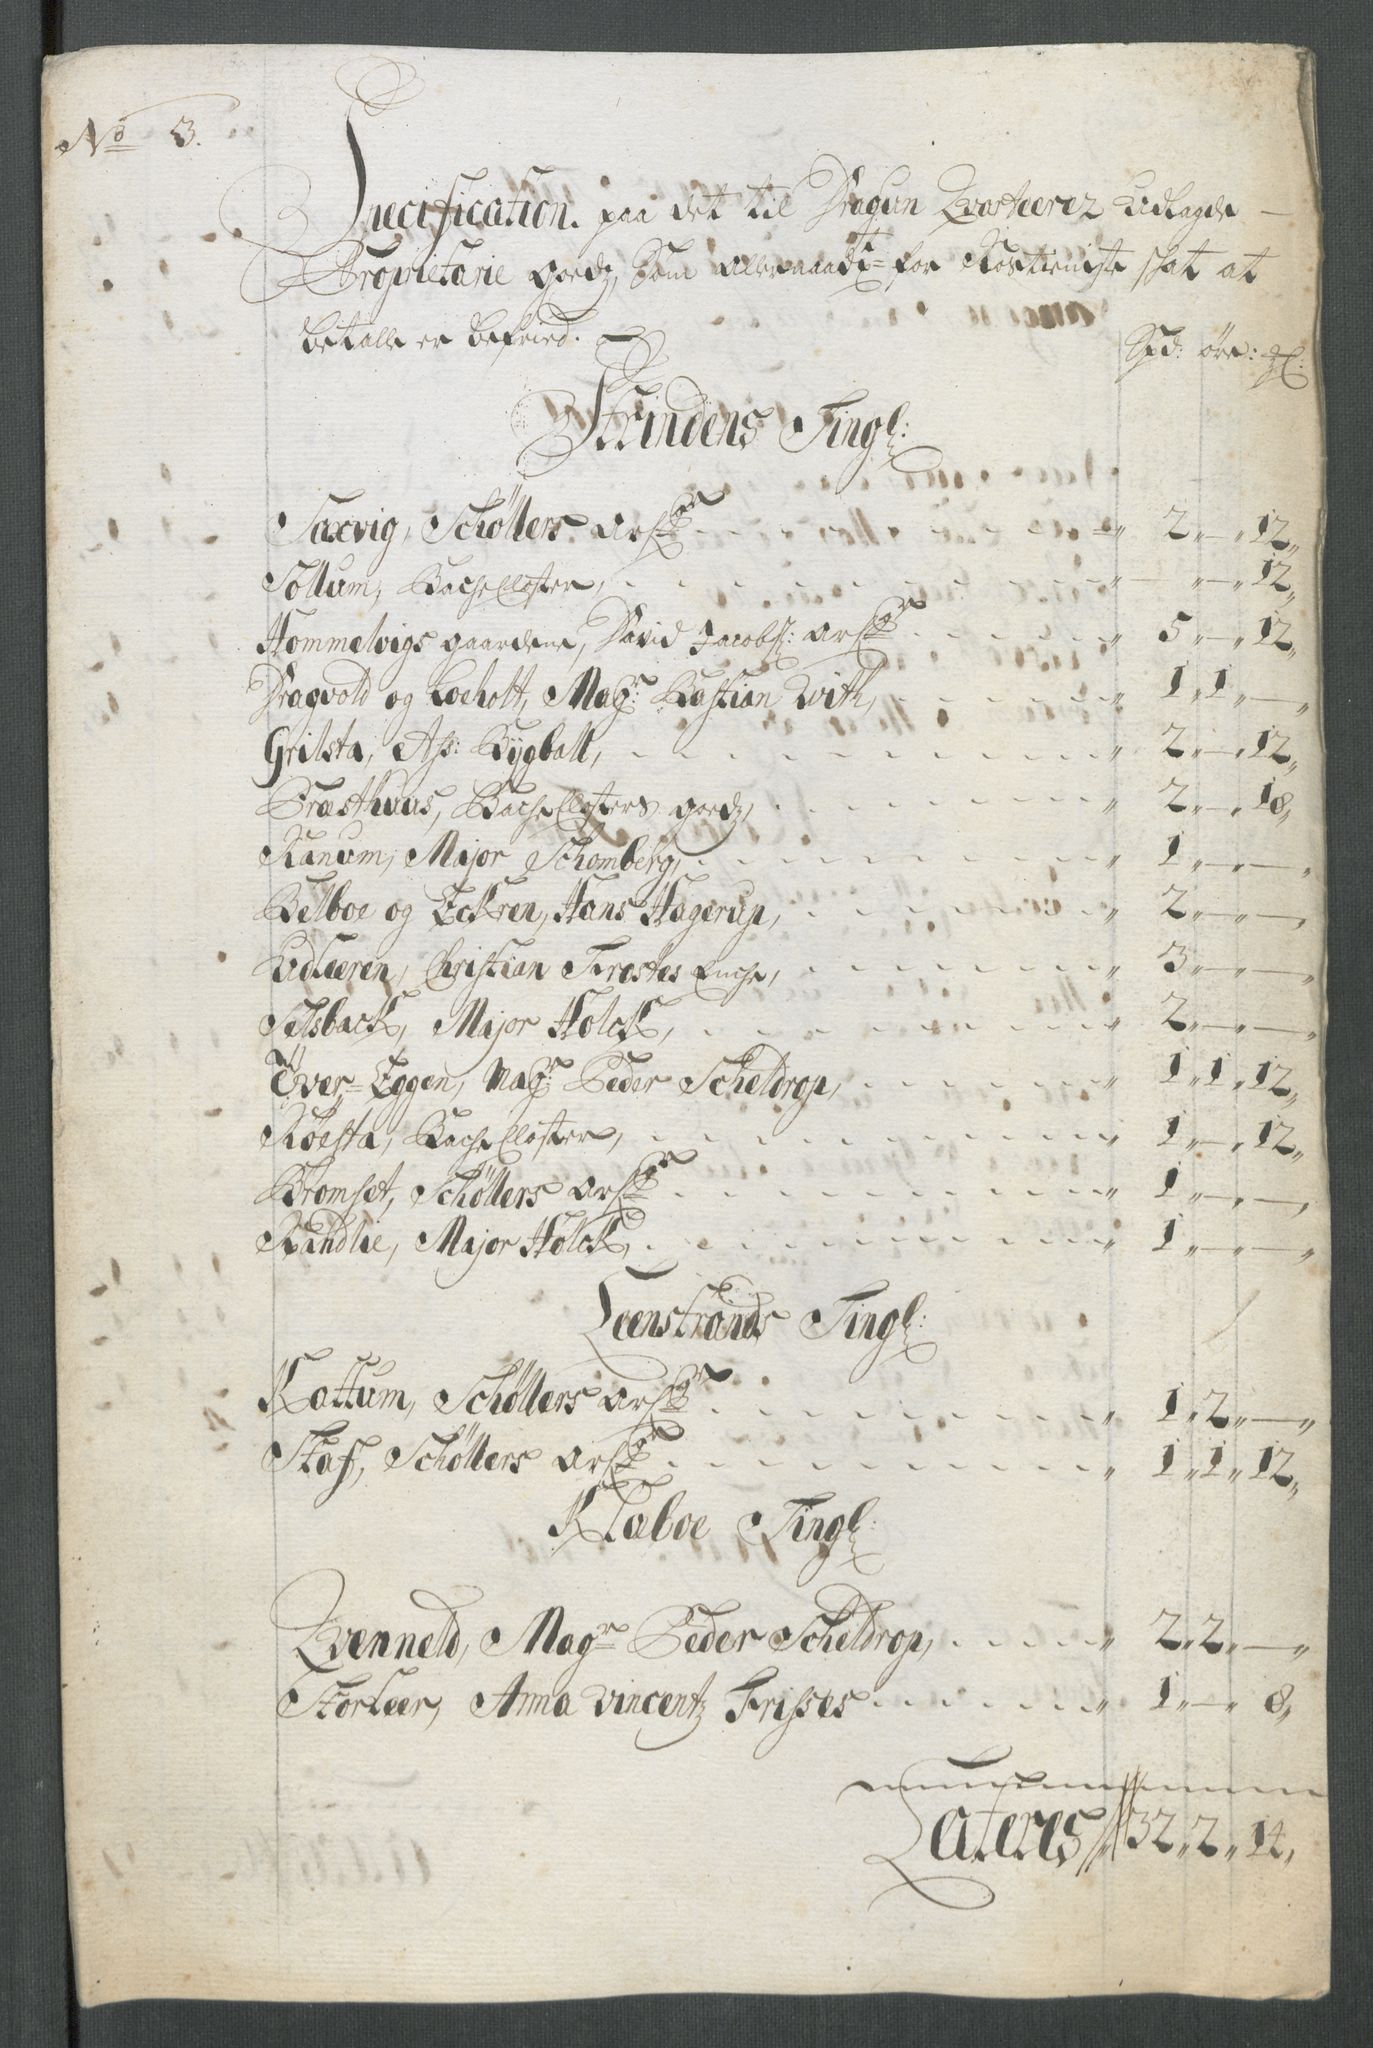 No 3.
Specification. paa det til Dragun Qvarteerez Udlagde
Proprietarie goedz, Som allernaadt= for Rostieniste skat at
betalle er befried.
Spd: öre: gl:
Strindens Tingl:
Saxvig, Schöllers arf: 2 „ — „ 12 „
Sollum, Bache Closter, — „ — „ 12 „
Hommelvigs gaardene, David Jacobs: arf: 5 „ — „ 12 „
Dragvold og Loeholt, Mag: Bastian With, 1 „ 1 „ — „
Grilsta, Ass: Bygball, 2 „ — „ 12 „
Præsthuus, Bache Closters goedz, 2 „ — „ 18 „
Ranum, Major Schomberg, 1 „ — „ — „
Belboe og Eckren, Hans Hagerup, 2 „ — „ — „
Udleeren, Christian Frostes Enche, 3 „ — „ — „
Selsback, Major Holck, 2 „ — „ — „
Över=Eggen, Mag: Peder Scheldrop, 1 „ 1 „ 12 „
Röesta, Bache Closter, 1 „ — „ 12 „
Bromset, Schöllers arf: 1 „ — „ — „
Randlie, Major Holck, 1 „ — „ — „
Leenstrands Tingl:
Kattum, Schöllers arf: 1 „ 2 „ — „
Skaf, Schöllers arf: 1 „ 1 „ 12 „
Klæboe Tingl:
Qvenneld, Magr Peder Scheldrop, 2 „ 2 „ — „
Storleer, Anna Vincentz Frisses 1 „ — „ 8 „
Lateres 32 „ 2 „ 14 „